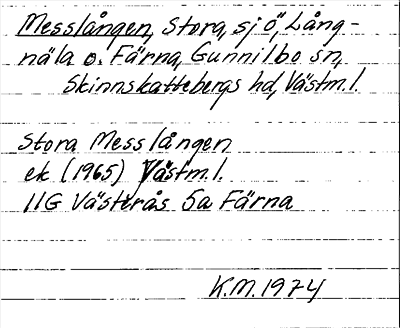 Messlången, Stora, sjö, Lång-
näla o. Färna, Gunnilbo sn,
Skinnskattebergs hd, Västm.l.
Stora Messlången
ek (1965) Västm.l.
11G Västerås 5a Färna
K.M. 1974